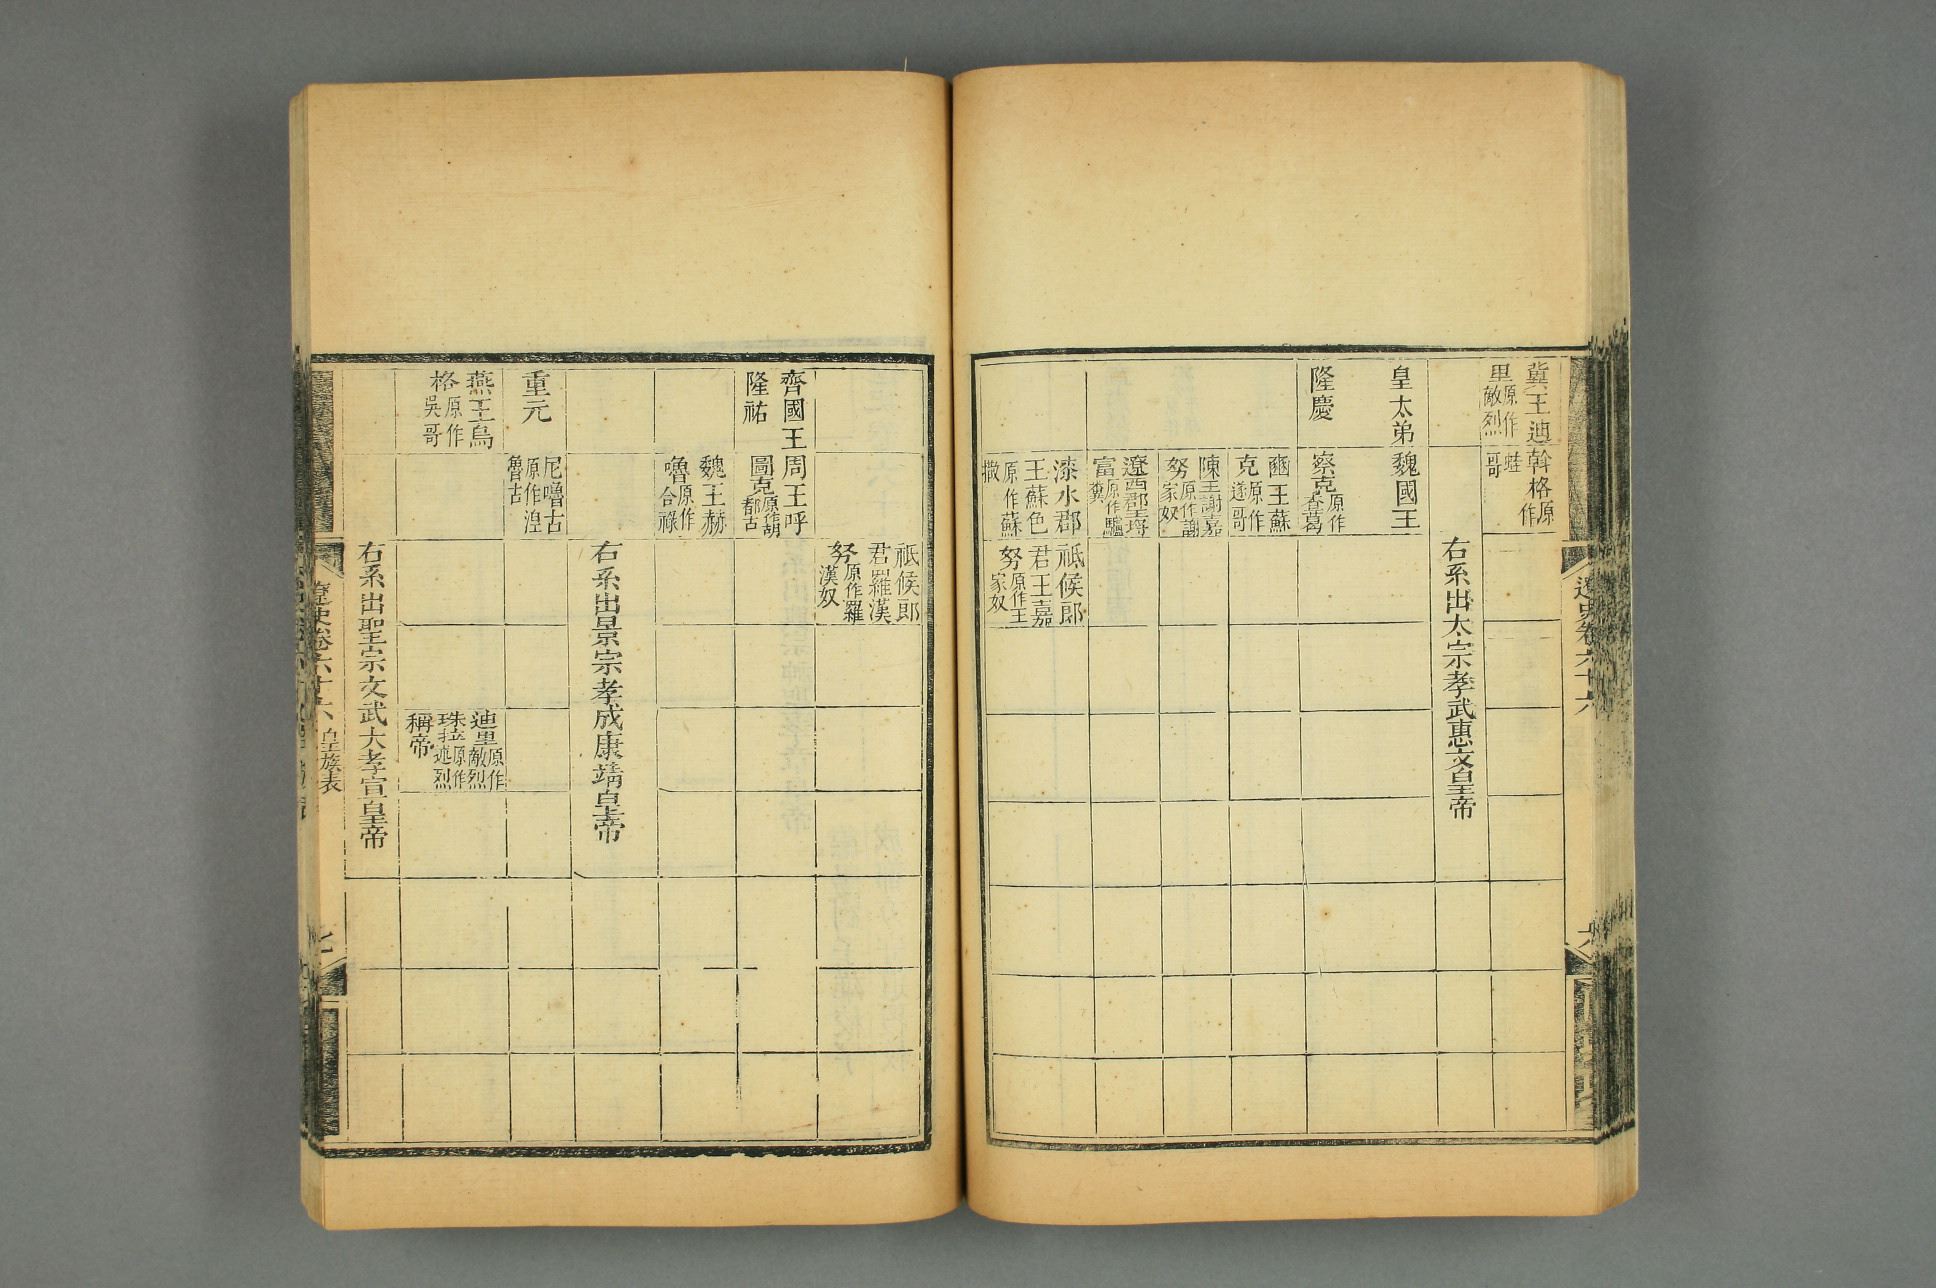 冀王迪
里原作敵烈
斡格原作
蛙哥
右系出太宗孝武惠文皇帝
皇太弟
隆慶
魏國王
察克原作查葛
豳王蘇
克原作遂哥
陳王謝嘉
努原作謝家奴
遼西郡王
富原作驢糞
漆水郡
王蘇色
原作蘇撒
祗候郎
君王嘉
努原作王家奴
遼史卷六十六
六
祗候郎
君羅漢
努原作羅漢奴
齊國王
隆祐
周王呼
圖克原作胡都古
魏王赫
嚕原作合祿
右系出景宗孝成康靖皇帝
重元
尼嚕古
原作涅魯古
燕王烏
格原作吳哥
迪里原作敵烈
稱帝
右系出聖宗文武大孝宣皇帝
遼史卷六十六
皇族表
七